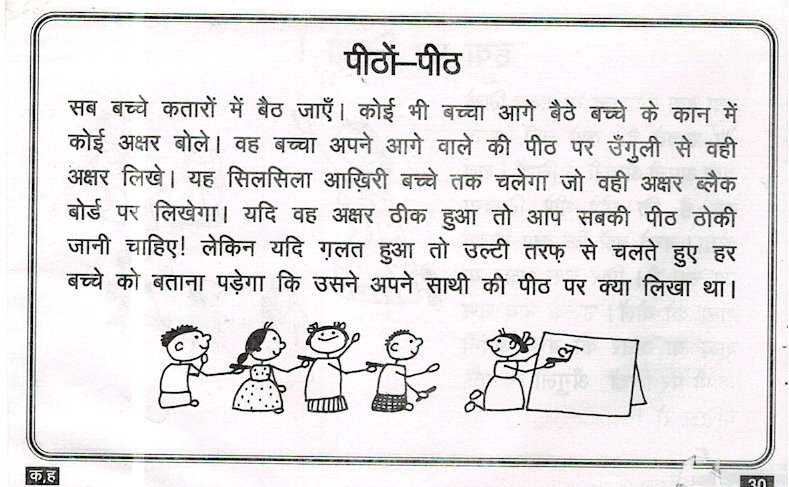 पीठों–पीठ
सब बच्चे कतारों में बैठ जाएँ। कोई भी बच्चा आगे बैठे बच्चे के कान में
कोई अक्षर बोले। वह बच्चा अपने आगे वाले की पीठ पर उँगुली से वही
अक्षर लिखे। यह सिलसिला आख़िरी बच्चे तक चलेगा जो वही अक्षर ब्लैक
बोर्ड पर लिखेगा। यदि वह अक्षर ठीक हुआ तो आप सबकी पीठ ठोकी
जानी चाहिए! लेकिन यदि ग़लत हुआ तो उल्टी तरफ़ से चलते हुए हर
बच्चे को बताना पड़ेगा कि उसने अपने साथी की पीठ पर क्या लिखा था।
ल
क,ह
30